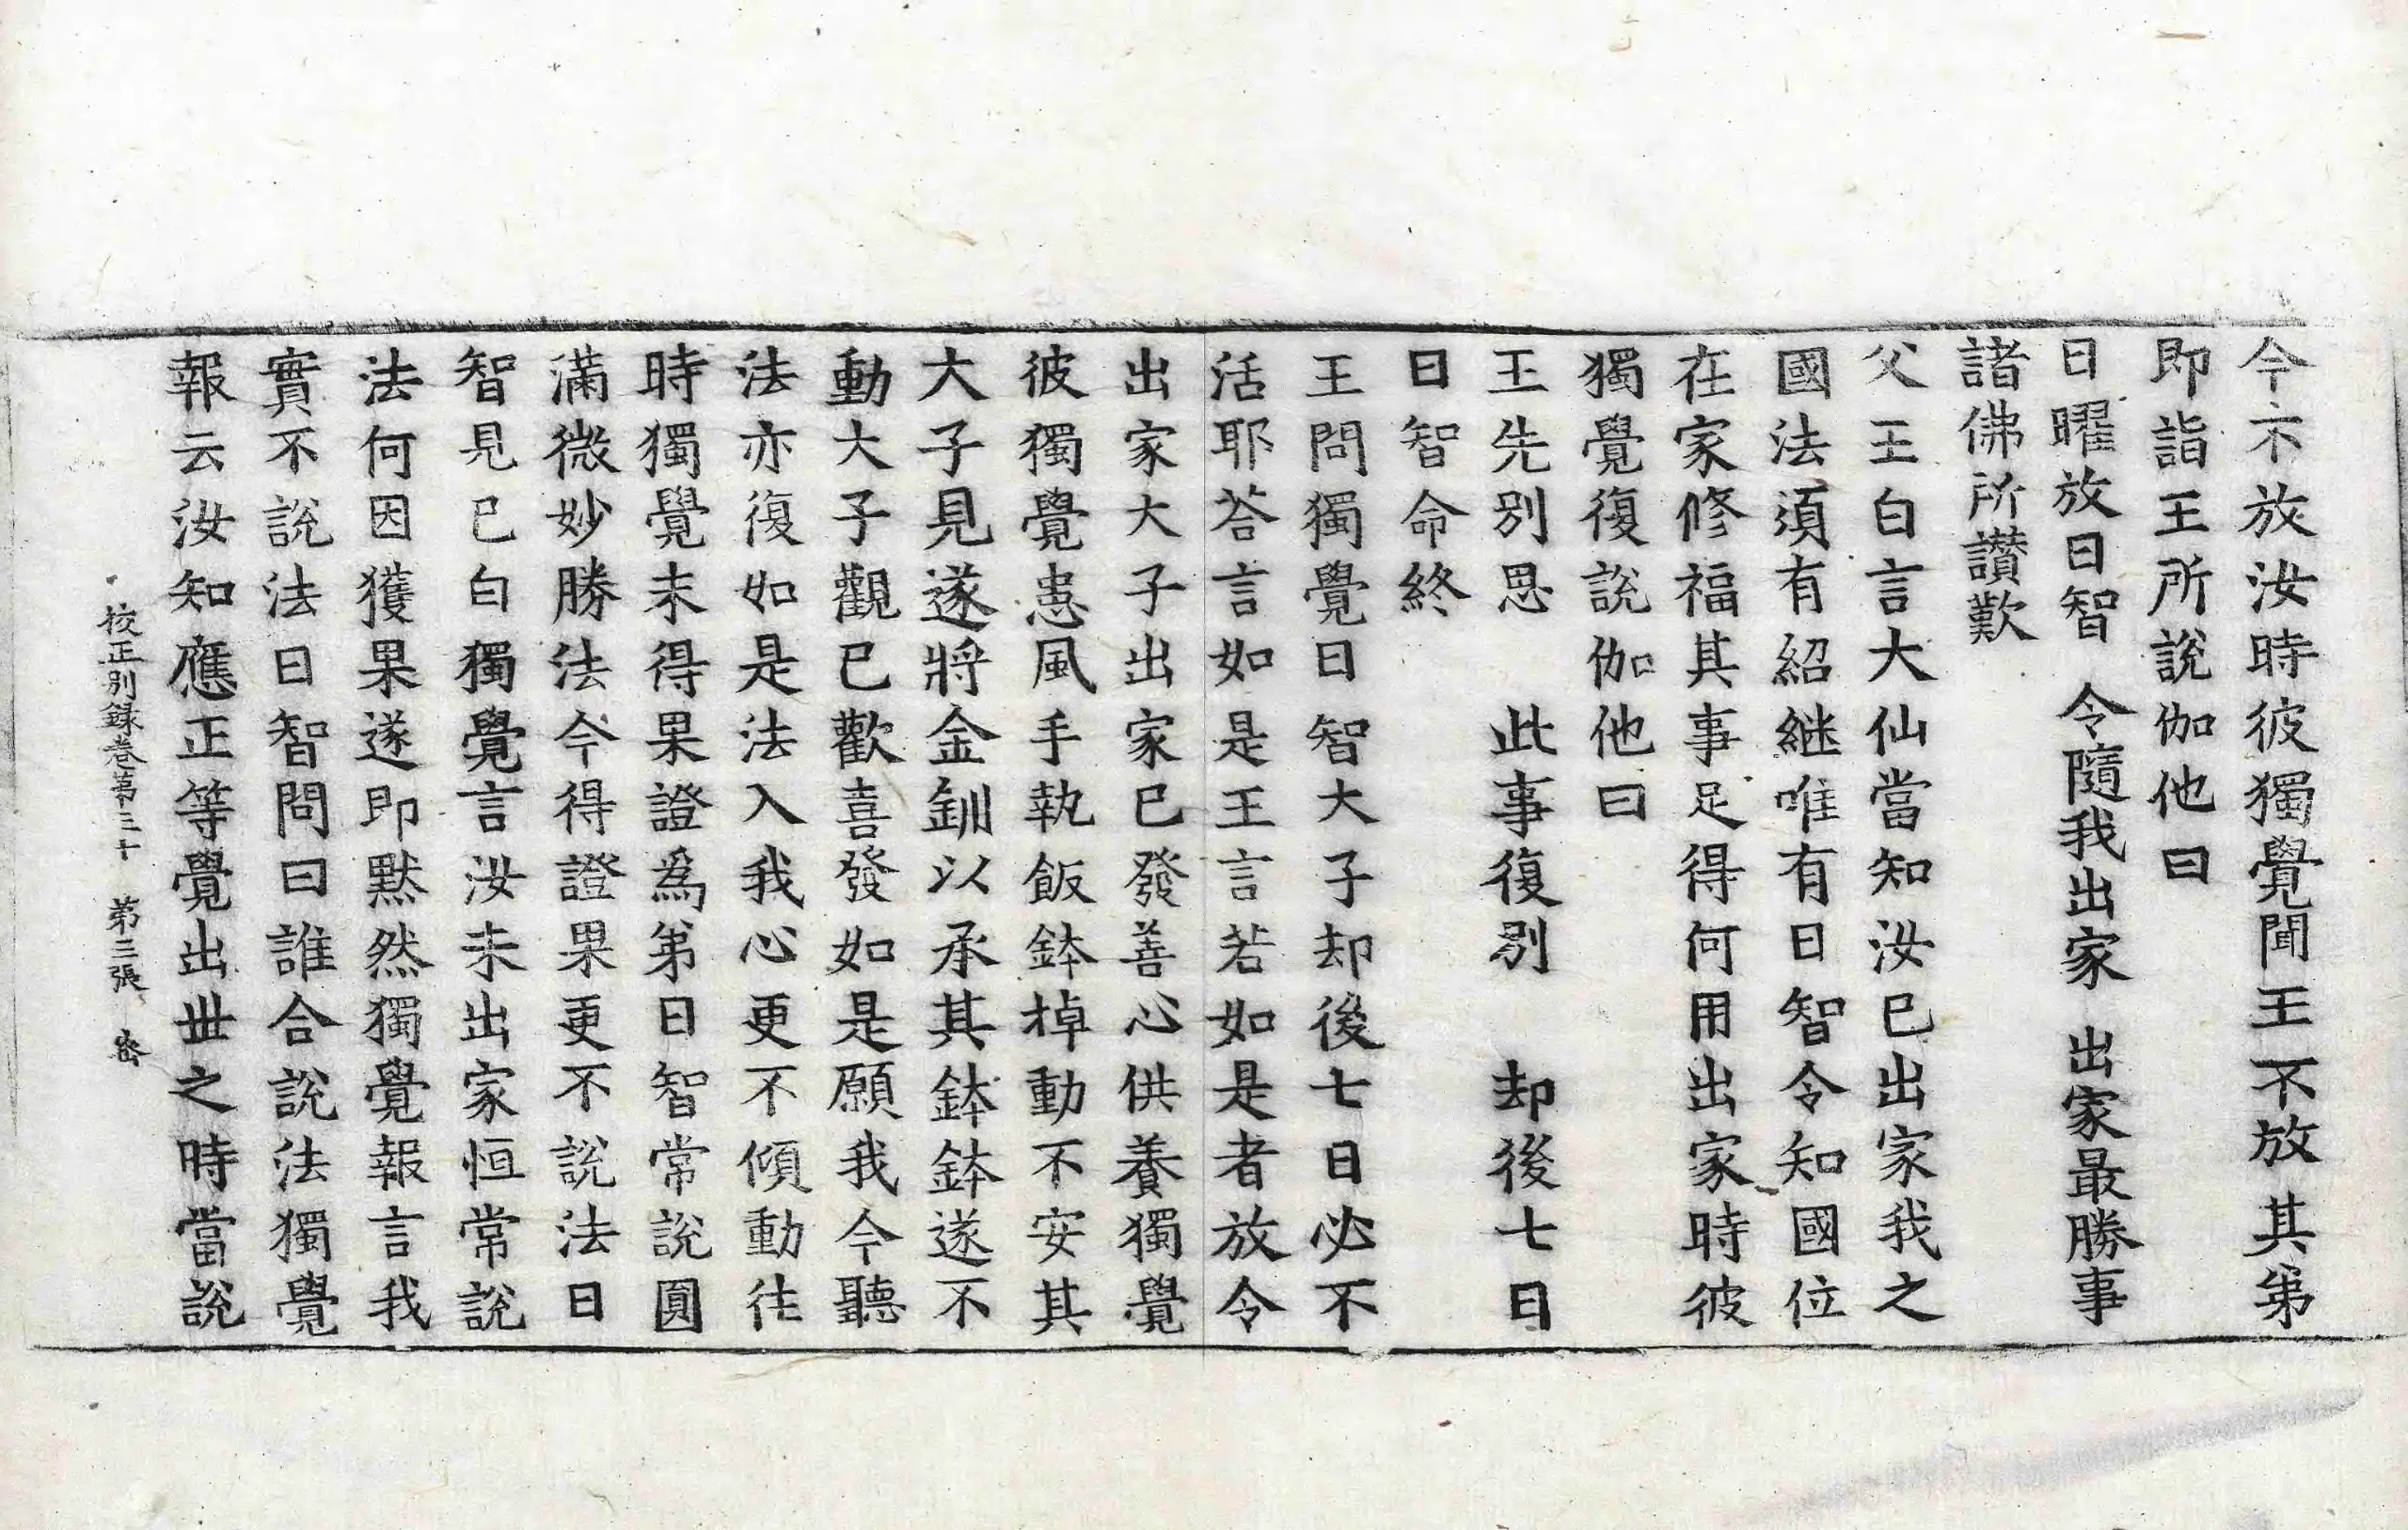 今不放汝時彼獨覺聞王不放其弟
即詣王所說伽他曰
日曜放日智　令隨我出家　出家最勝事
諸佛所讚歎
父王白言大仙當知汝已出家我之
國法須有紹継唯有日智令知國位
在家修福其事足得何用出家時彼
獨覺復說伽他曰
王先別思　此事復別　却後七日
日智命終
王問獨覺曰智大子却後七日必不
活耶荅言如是王言若如是者放令
出家大子出家已發善心供養獨覺
彼獨覺患風手執飯鉢掉動不安其
大子見遂將金釧以承其鉢鉢遂不
動大子觀已歡喜發如是願我今聽
法亦復如是法入我心更不傾動往
時獨覺未得果證爲弟日智常說圓
滿微妙勝法今得證果更不說法日
智見已白獨覺言汝未出家恒常說
法何因獲果遂即默然獨覺報言我
實不說法日智問曰誰合說法獨覺
報云汝知應正等覺出世之時當說
校正別録卷第三十　第三張　密